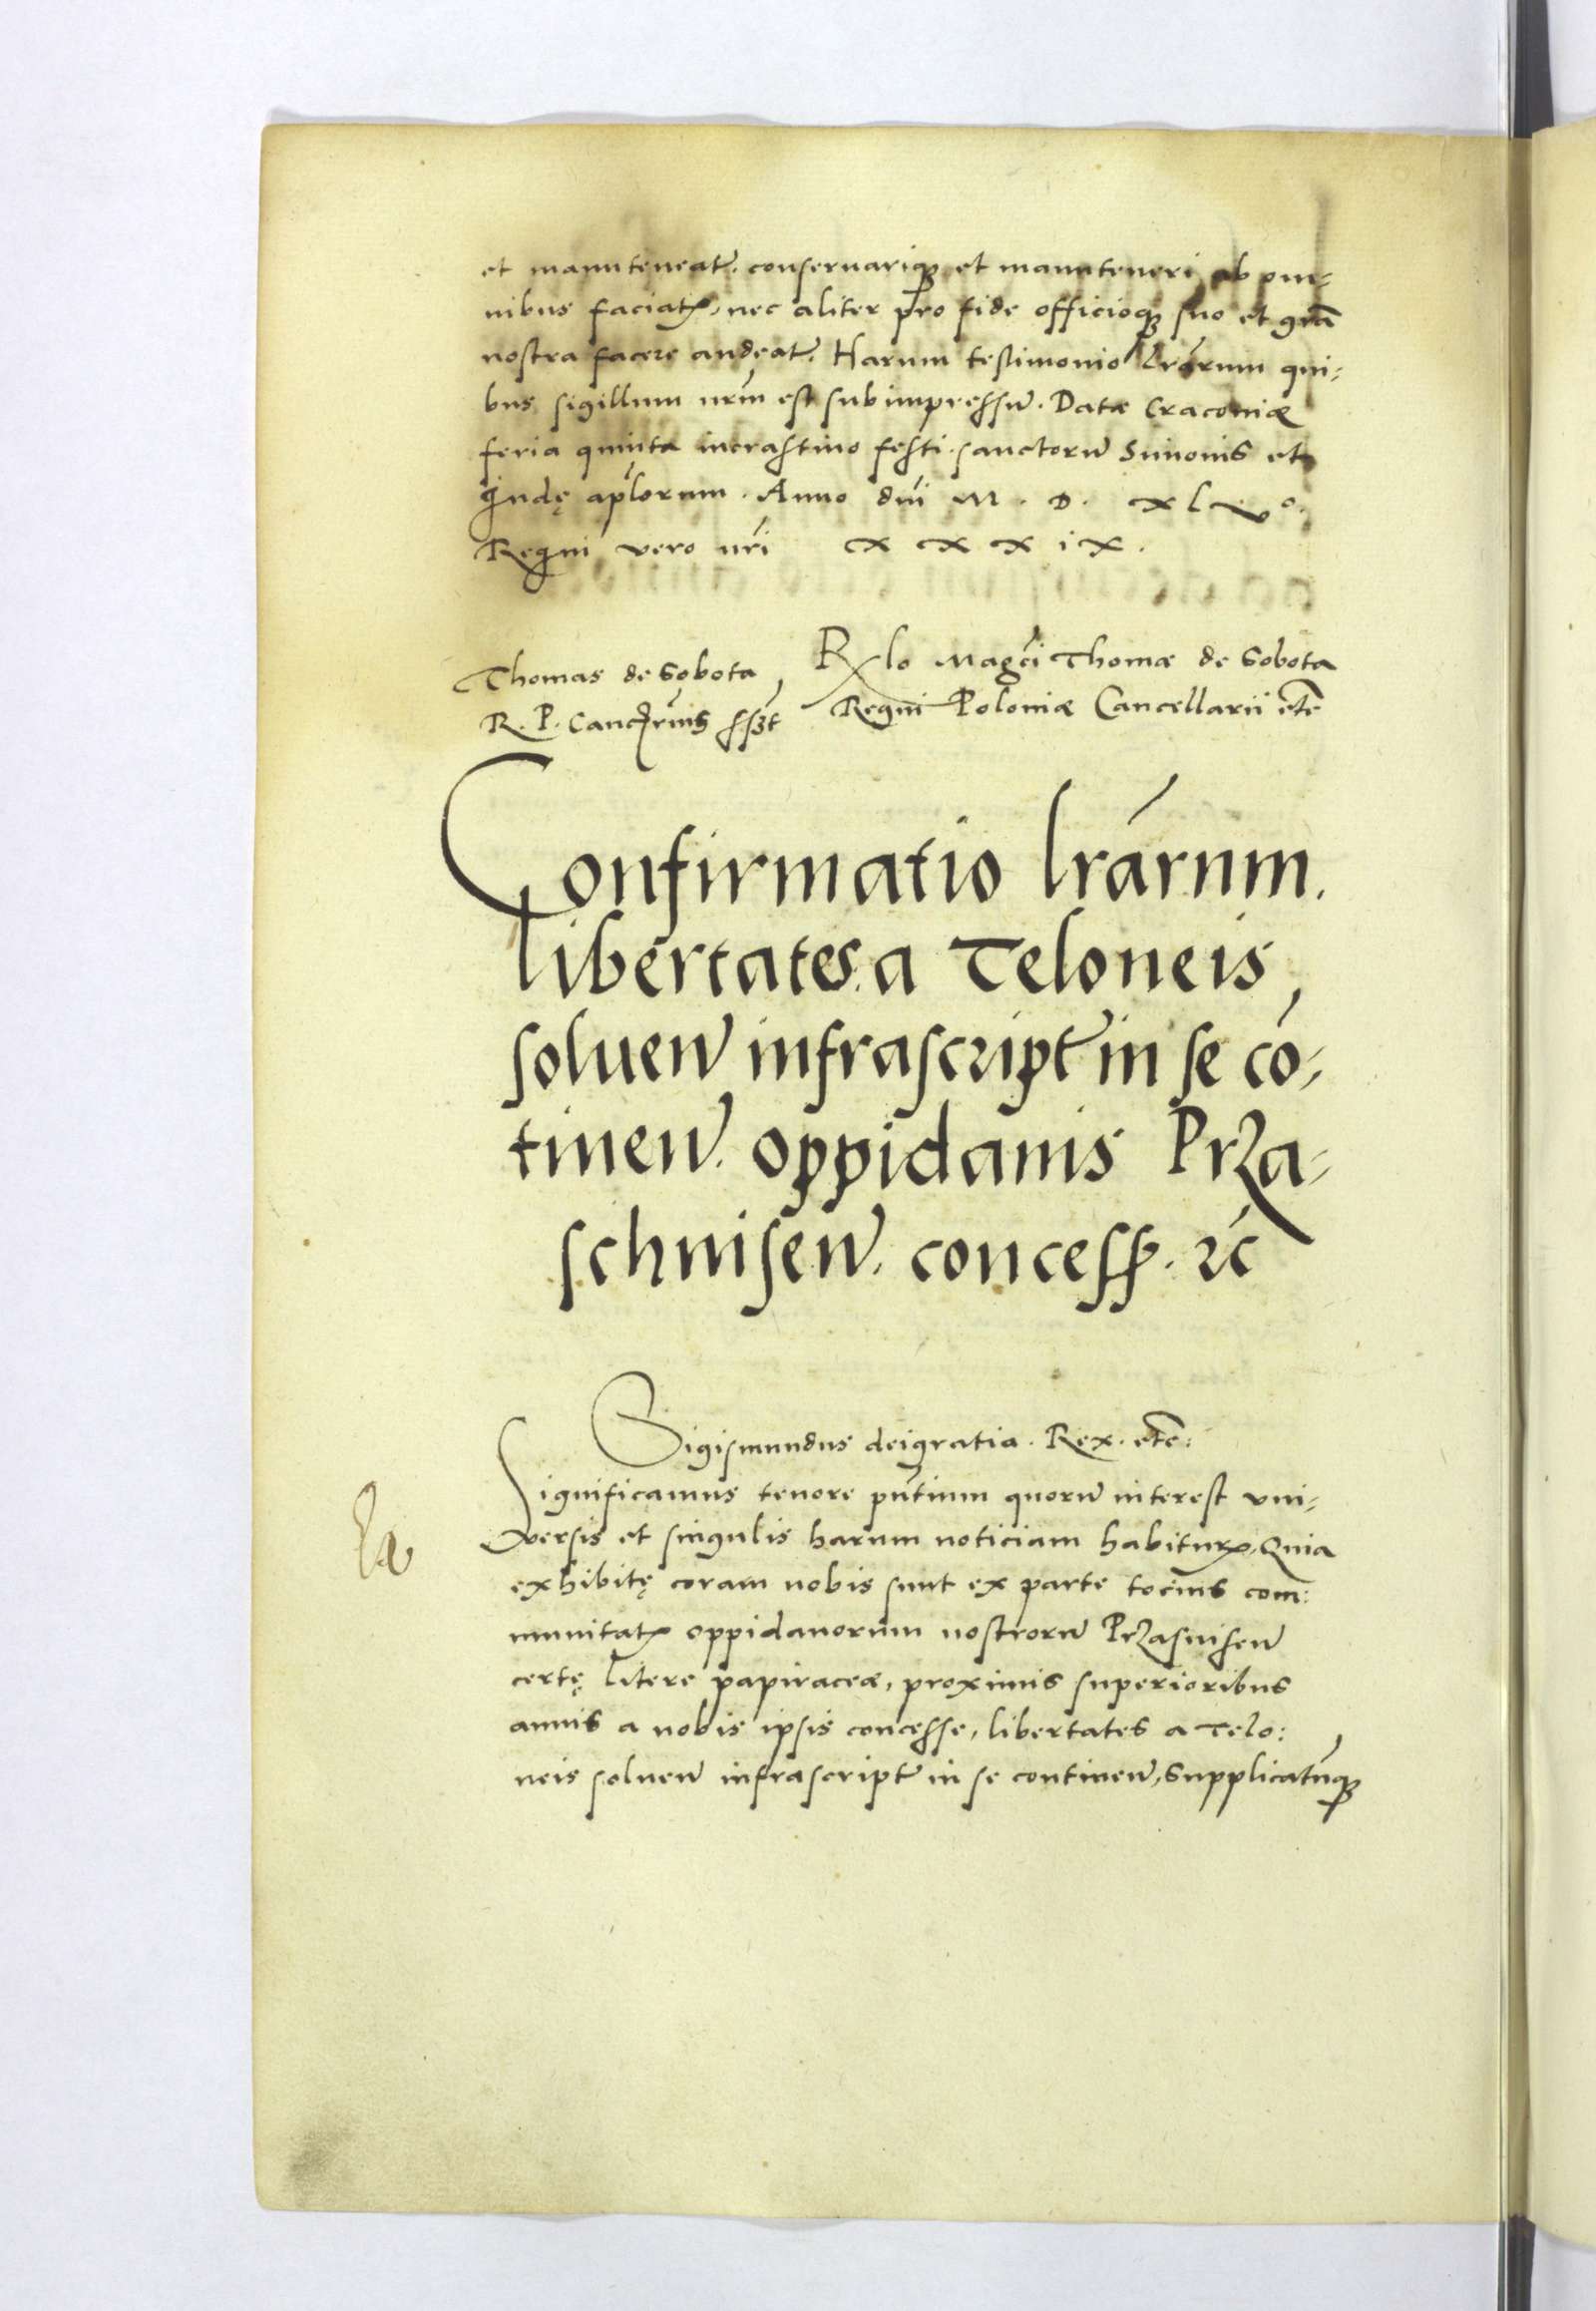 et manuteneat̃. conseruariq₃ et manuteneri ab om-
nibus faciatꝭ, nec aliter pro fide officioq₃ suo et grã
nostra facere audeat̃. Harum testimonio lrãrum qui-
bus sigillum nrm̃ est subimpressũ. Datæ Cracouiæ
feria quinta incrastino festi sanctorũ Simonis et
Iudę aplorum. Anno dni M. D. xlv°.
Regni vero nri xxxix.
Thomas de Sobota
R. P. Cancẽrius sszt
Rlo Magci Thomæ de Sobota
Regni Poloniæ Cancellarii etc̃
Confirmatio lrárum.
libertates a Teloneis
soluen̄ infrascript̃ in se cō-
tinen̄. oppidanis Prza-
schnisen̄. concessꝭ. ⁊c̃
Sigismundus deigratia. Rex. etc̃:
Significamus tenore pñtium quorũ interest vni-
versis et singulis harum noticiam habiturꝭ, Quia
exhibitę coram nobis sunt ex parte tocius com:
munitatꝭ oppidanorum nostrorũ Przasnisen̄
certę litere papiraceæ, proximis superioribus
annis a nobis ipsis concesse, libertates a Telo:
neis soluen̄ infrascript̃ in se continen̄, Supplicatũq₃